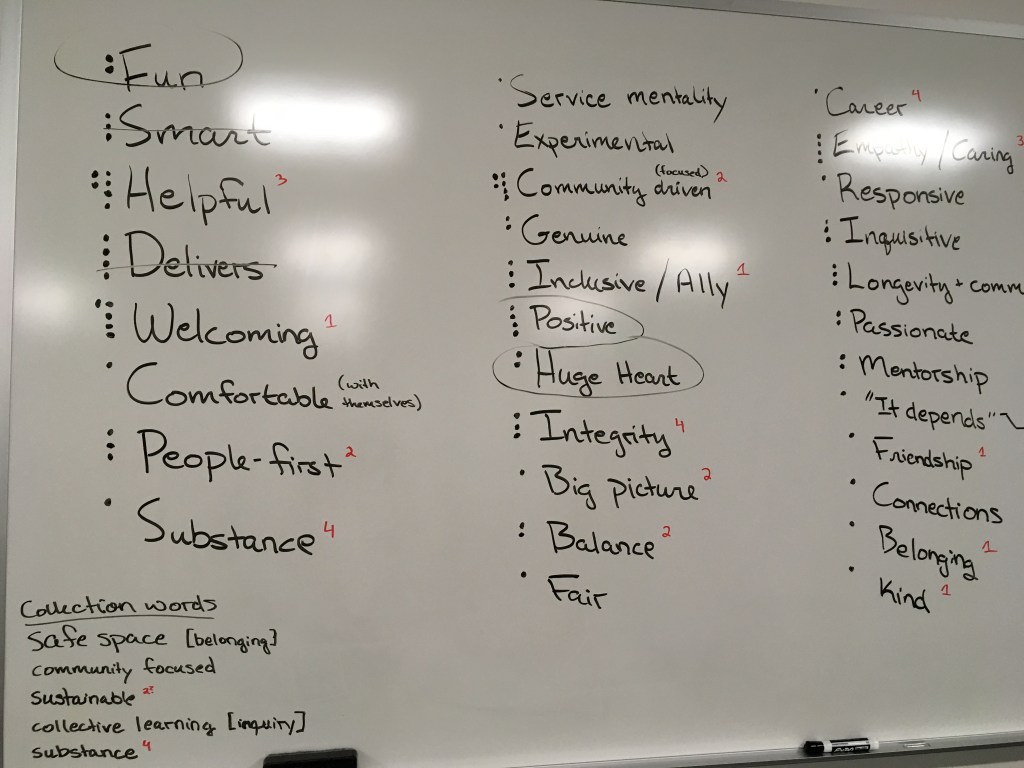 Fun
Smart
Helpful 3
Delivers
Welcoming 1
Comfortable (with themselves)
People-first 2
Substance 4
Collection words
Safe space [belonging]
community focused
sustainable 2?
collective learning [inquiry]
substance 4
Service mentality
Experimental
Community (focused) driven 2
Genuine
Inclusive / Ally 1
Positive
Huge Heart
Integrity 4
Big picture 2
Balance 2
Fair
Career 4
Empathy / Caring 3
Responsive
Inquisitive
Longevity + comm
Passionate
Mentorship
"It depends"
Friendship 1
Connections
Belonging 1
Kind 1